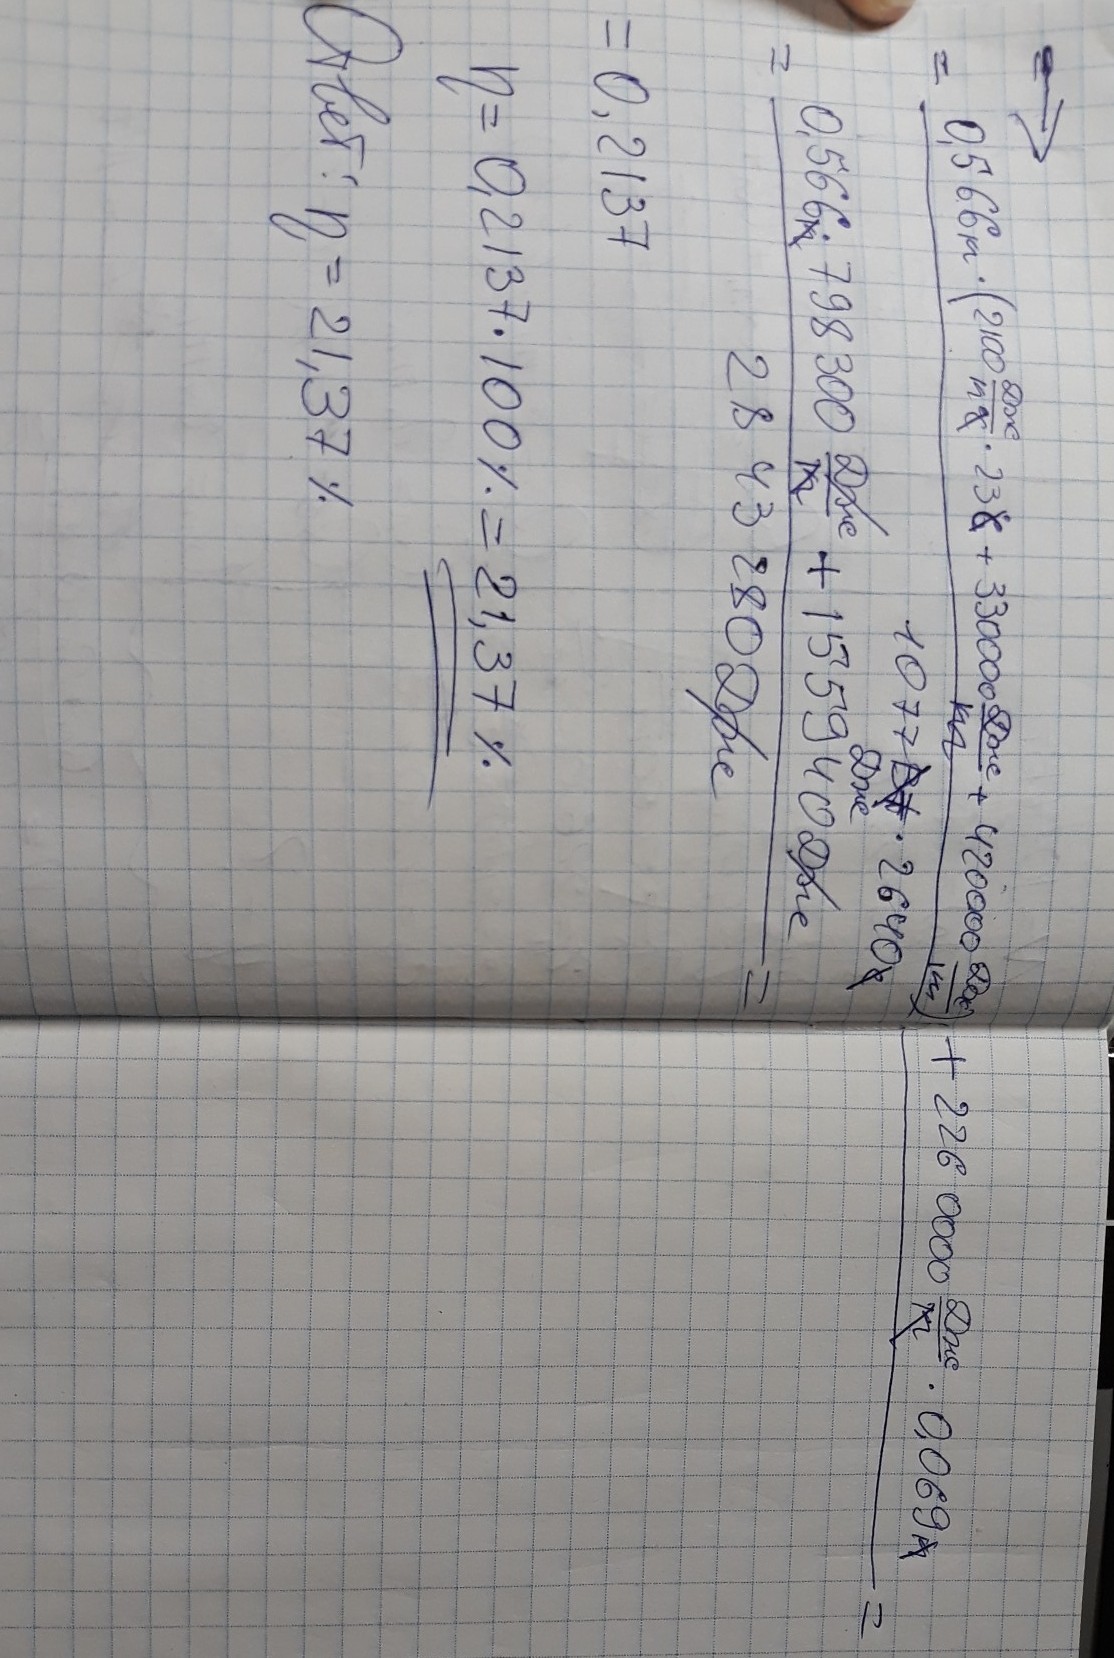 =>
= 0,566кг · (2100 Дж/кг·К · 23К + 330000 Дж/кг + 420000 Дж/кг) + 2260000 Дж/кг · 0,069кг =
1077 Дж · 2640с
= 0,566кг · 798300 Дж/кг + 155940Дж =
2843280Дж
= 0,2137
η = 0,2137 · 100% = 21,37%
Ответ: η = 21,37%